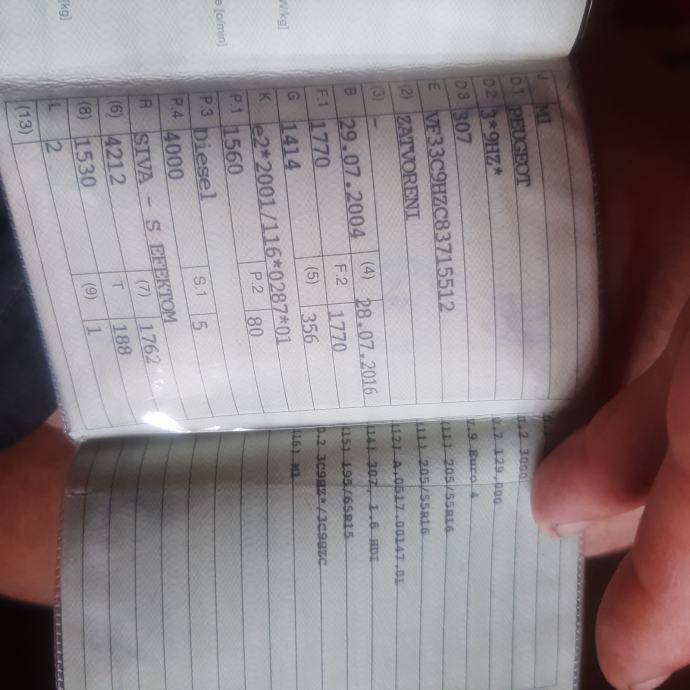 J MI
D.1 PEUGEOT
D.2 3*9HZ*
D.3 307
E VF33C9HZC83715512
(2) ZATVORENI
(3) - (4) 28.07.2016
B 29.07.2004
F.1 1770 F.2 1770
G 1414 (5) 356
K e2*2001/116*0287*01
P.1 1560 P.2 80
P.3 Diesel S.1 5
P.4 4000
R SIVA - S EFEKTOM
(6) 4212 (7) 1762
(8) 1530 T 188
L 2 (9) 1
(13)
U.2 3000
V.7 129,000
V.9 Euro 4
(11) 205/55R16
(11) 205/55R16
(12) A.0517.00147.01
(14) 307, 1.6 HDI
(15) 195/65R15
D.2 3C9HZ*/3C9HZC
(16) M1
W/kg]
[o/min]
[kg]